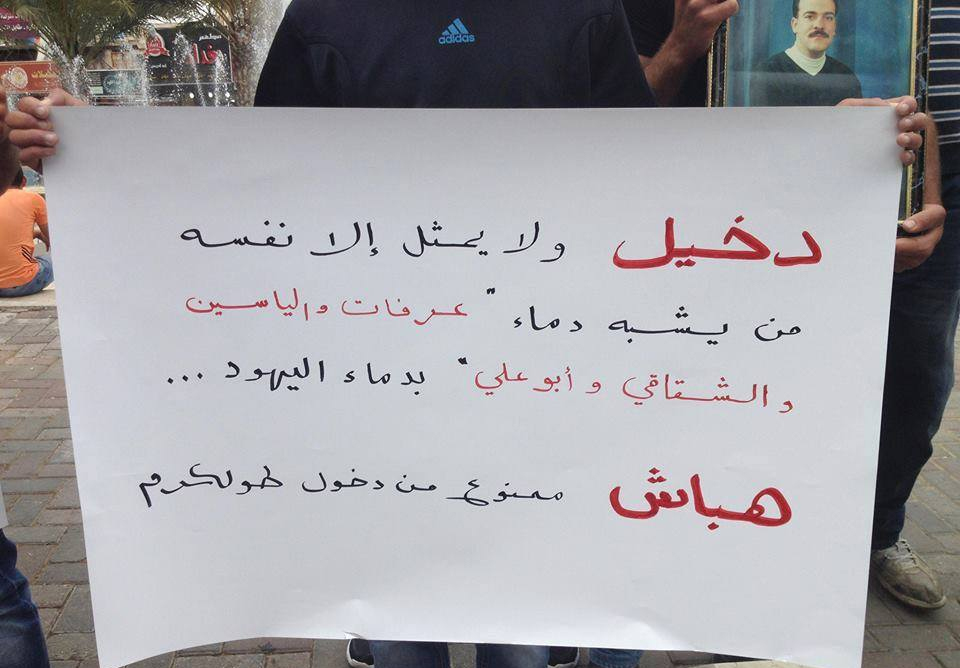 adidas
دخيل ولا يمثل إلا نفسه
من يشبه دماء "عرفات والياسين
والشقاقي وأبو علي" بدماء اليهود ...
هباش ممنوع من دخول طولكرم